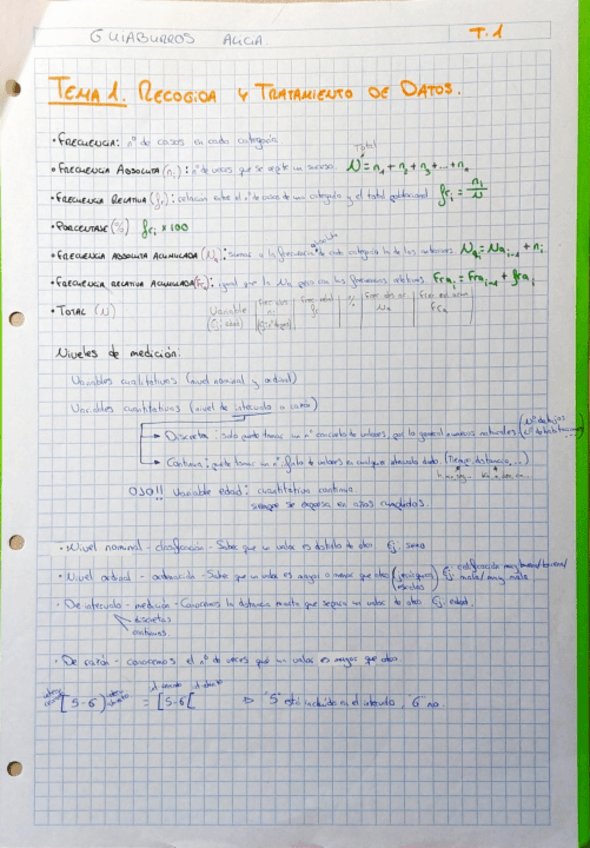 GUIABURROS ALICIA.
T.1
TEMA 1. RECOGIDA Y TRATAMIENTO DE DATOS.
• FRECUENCIA: nº de casos en cada categoría
Total
• FRECUENCIA ABSOLUTA (ni): nº de veces que se repite un suceso. N = n1 + n2 + n3 + ... + nn
• FRECUENCIA RELATIVA (fr): relación entre el nº de casos de una categoría y el total poblacional fri = ni/N
• PORCENTAJE (%) fri x 100
absoluta
• FRECUENCIA ABSOLUTA ACUMULADA (Na): sumar a la frecuencia de cada categoría la de las anteriores Nai = Nai-1 + ni
• FRECUENCIA RELATIVA ACUMULADA (Fra): igual que la Na pero con las frecuencias relativas Frai = Frai-1 + frai
• TOTAL (N)
Variable (Ej: edad) | Frec abs ni | Frec relat fr | % | Frec abs ac Na | Frec rel acum FRa
Niveles de medición:
Variables cualitativas (nivel nominal y ordinal)
Variables cuantitativas (nivel de intervalo o razón)
Discreta: solo puede tomar un nº concreto de valores, por lo general números naturales (Nº de hijos Nº de habitaciones ...)
Continua: puede tomar un nº de valores en cualquier intervalo dado. (Tiempo, distancia, ...)
OJO!! Variable edad: cuantitativa continua.
siempre se expresa en años cumplidos.
• Nivel nominal - clasificación - Saber que un valor es distinto de otro Ej: sexo
• Nivel ordinal - ordenación - Saber que un valor es mayor o menor que otro Ej: calificación muy buena/buena/mala/muy mala
• De intervalo - medición - Conocemos la distancia exacta que separa un valor de otro Ej: edad.
discretas
continuas
• De razón - conocemos el nº de veces que un valor es mayor que otro.
[5-6) = [5-6[ "5" está incluido en el intervalo, 6 no.